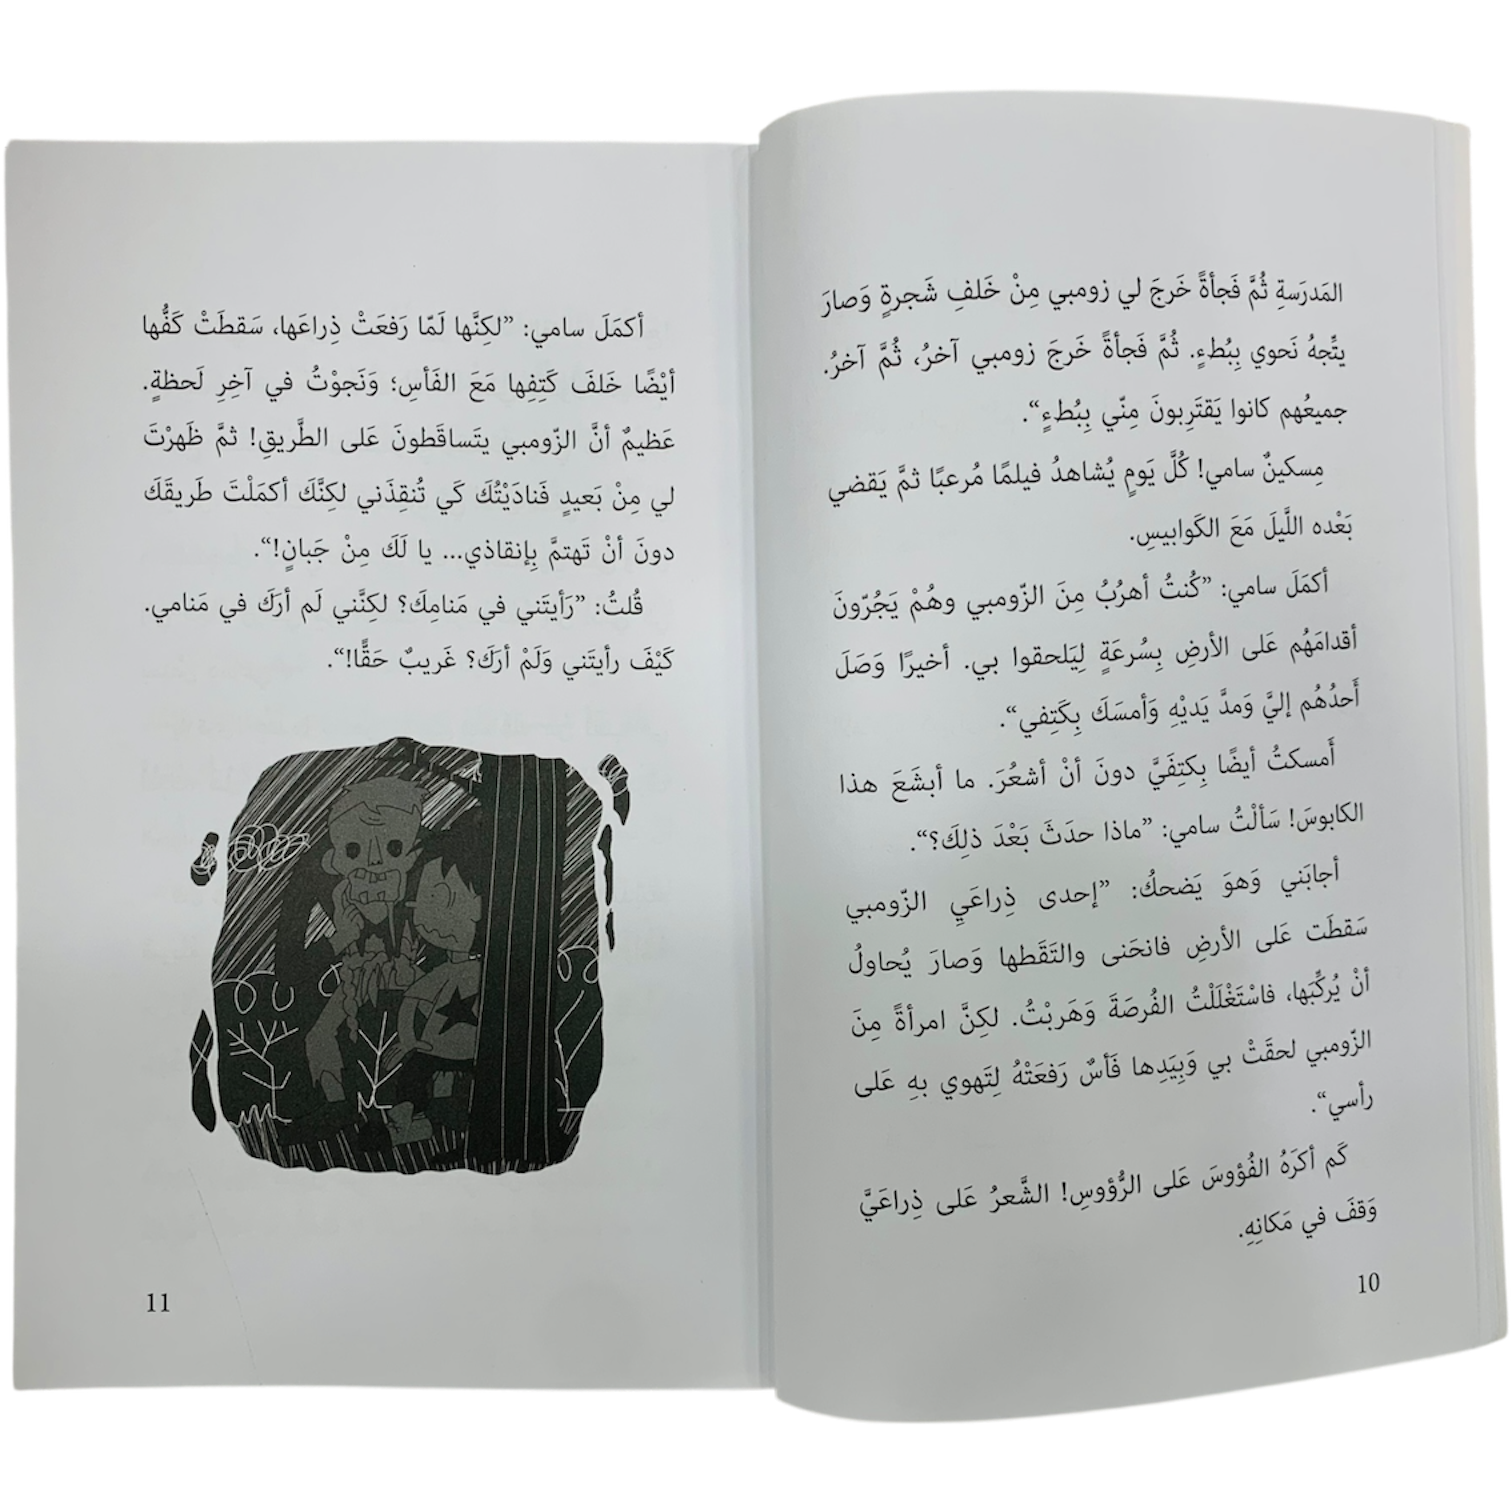 المَدرَسةِ ثُمَّ فَجأةً خَرجَ لي زومبي مِنْ خَلفِ شَجرةٍ وَصارَ
يتَّجهُ نَحوي بِبُطءٍ. ثُمَّ فَجأةً خَرجَ زومبي آخرُ، ثُمَّ آخرُ.
جميعُهم كانوا يَقتَرِبونَ مِنّي بِبُطءٍ“.
مِسكينٌ سامي! كُلَّ يَومٍ يُشاهدُ فيلمًا مُرعبًا ثمَّ يَقضي
بَعْده اللَّيلَ مَعَ الكَوابيسِ.
أكمَلَ سامي: ”كُنتُ أهرُبُ مِنَ الزّومبي وهُمْ يَجُرّونَ
أقدامَهُم عَلى الأرضِ بِسُرعَةٍ لِيَلحقوا بي. أخيرًا وَصَلَ
أَحدُهُم إليَّ وَمدَّ يَديْهِ وَأمسَكَ بِكَتِفي“.
أَمسكتُ أيضًا بِكتِفَيَّ دونَ أنْ أشعُرَ. ما أبشَعَ هذا
الكابوسَ! سَألْتُ سامي: ”ماذا حدَثَ بَعْدَ ذلِكَ؟“.
أجابَني وَهوَ يَضحكُ: ”إحدى ذِراعَيِ الزّومبي
سَقطَت عَلى الأرضِ فانحَنى والتَقَطها وَصارَ يُحاولُ
أنْ يُركِّبَها، فاسْتَغْلَلْتُ الفُرصَةَ وَهَربْتُ. لكِنَّ امرأةً مِنَ
الزّومبي لحقَتْ بي وَبِيَدِها فَأسٌ رَفعَتْهُ لِتَهوي بهِ عَلى
رأسي“.
كَم أكرَهُ الفُؤوسَ عَلى الرُّؤوسِ! الشَّعرُ عَلى ذِراعَيَّ
وَقفَ في مَكانِهِ.
10
أكمَلَ سامي: ”لكِنَّها لَمّا رَفعَتْ ذِراعَها، سَقطَتْ كَفُّها
أيْضًا خَلفَ كَتِفِها مَعَ الفَأسِ؛ وَنَجوْتُ في آخِرِ لَحظةٍ.
عَظيمٌ أنَّ الزّومبي يتَساقَطونَ عَلى الطَّريقِ! ثمَّ ظَهرْتَ
لي مِنْ بَعيدٍ فَنادَيْتُكَ كَي تُنقِذَني لكِنَّكَ أكمَلْتَ طَريقَكَ
دونَ أنْ تَهتمَّ بِإنقاذي... يا لَكَ مِنْ جَبانٍ!“.
قُلتُ: ”رَأيتَني في مَنامِكَ؟ لكِنَّني لَم أرَكَ في مَنامي.
كَيْفَ رأيتَني وَلَمْ أرَكَ؟ غَريبٌ حَقًّا!“.
11